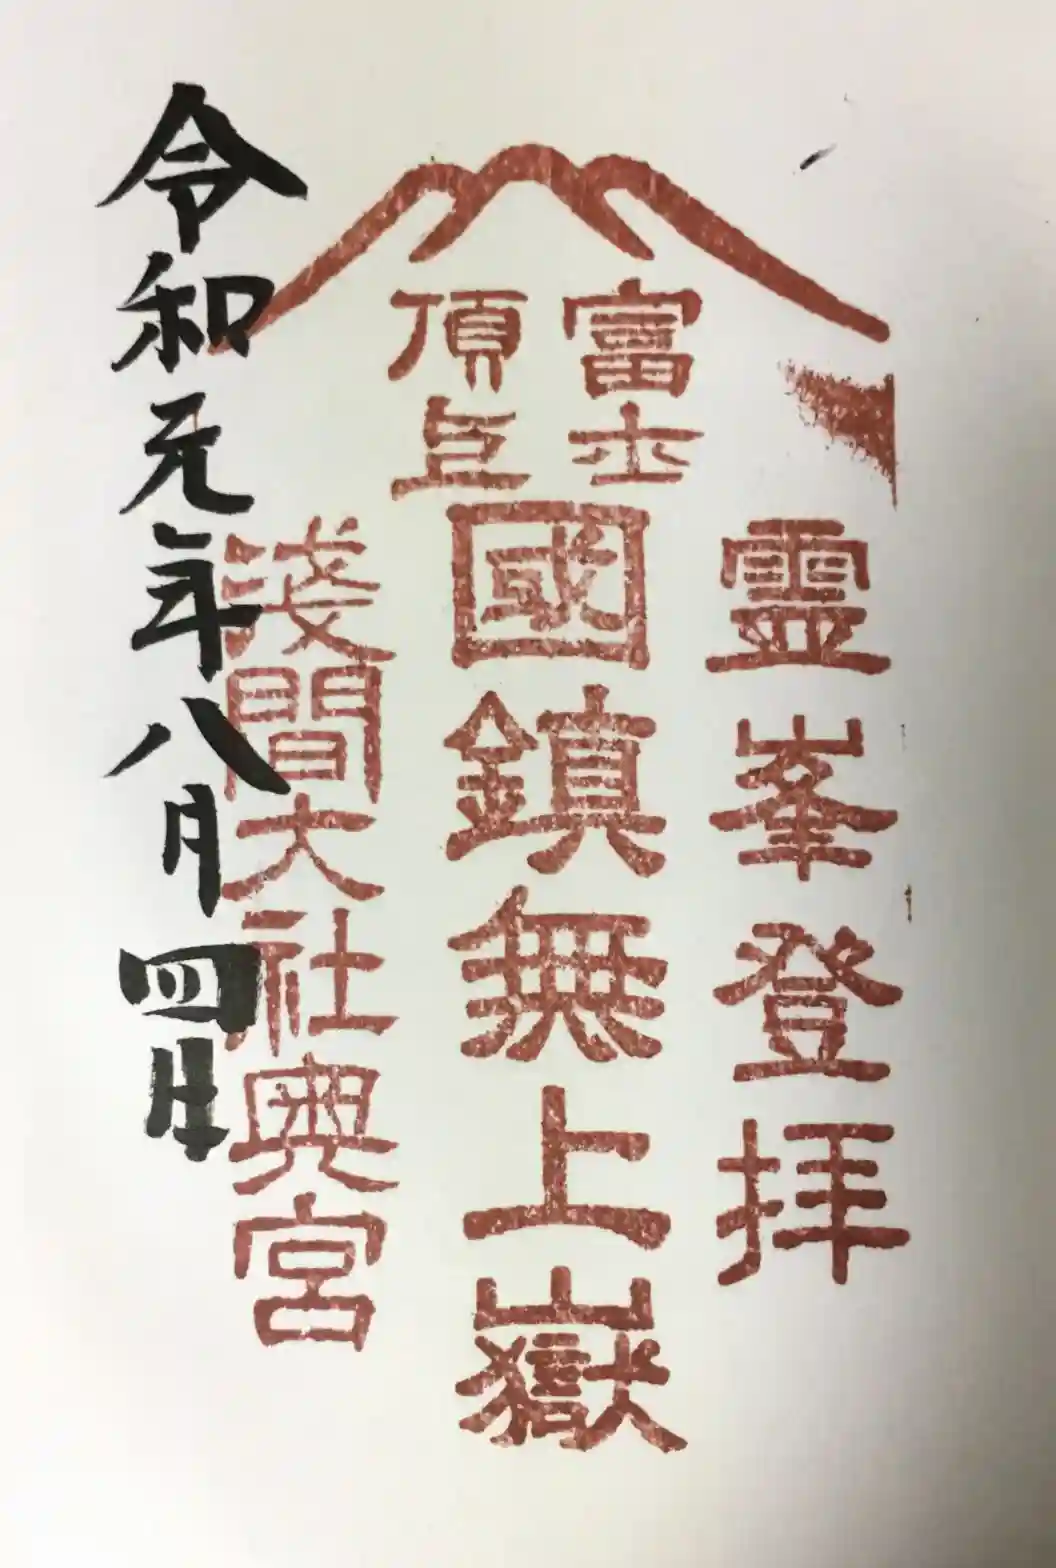 富士
頂上
靈峯登拝
國鎮無上嶽
淺間大社奥宮
令和元年八月四日